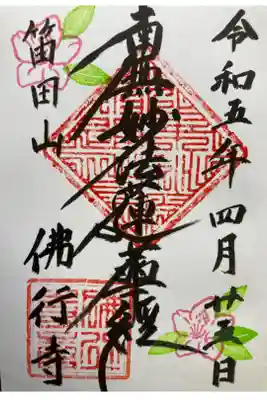 令和五年 四月廿五日
南無妙法蓮華經
笛田山 佛行寺